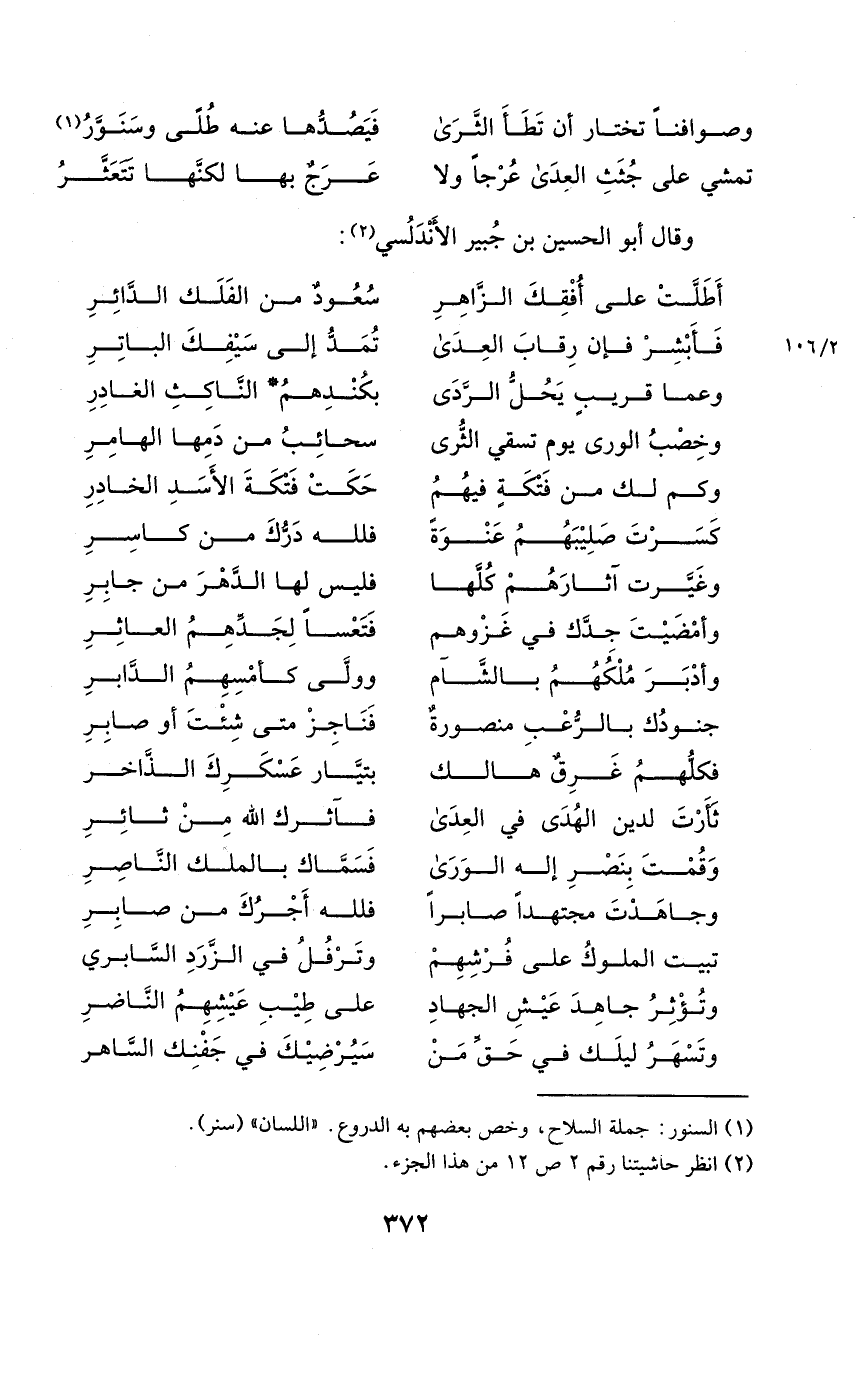 وصوافناً تختار أن تَطَأَ الثَّرَىٰ فَيَصُدُّها عنه طُلًى وسَنَوَّرُ(١)
تمشي على جُثَثِ العِدَىٰ عُرْجاً ولا عَرَجٌ بها لكنَّها تَتَعَثَّرُ
وقال أبو الحسين بن جُبير الأَنْدَلُسي(٢):
أَطَلَّتْ على أُفْقِكَ الزَّاهِرِ سُعُودٌ من الفَلَك الدَّائِرِ
فَأَبْشِرْ فإن رِقابَ العِدَىٰ تُمَدُّ إلى سَيْفِكَ الباتِرِ ١٠٦/٢
وعما قريبٍ يَحُلُّ الرَّدَى بكُنْدِهِمُ* النَّاكِثِ الغادِرِ
وخِصْبُ الورى يوم تسقي الثُّرى سحائِبُ من دَمِها الهامِرِ
وكم لك من فَتْكَةٍ فيهُمُ حَكَتْ فَتْكَةَ الأَسَدِ الخادِرِ
كَسَرْتَ صَلِيْبَهُمُ عَنْوَةً فلله دَرُّكَ من كاسِرِ
وغَيَّرت آثارَهُمْ كُلَّها فليس لها الدَّهْرَ من جابِرِ
وأمْضَيْتَ جِدَّك في غَزْوهم فَتَعْساً لِجَدِّهِمُ العاثِرِ
وأدْبَرَ مُلْكُهُمُ بالشَّآم وولَّى كأمْسِهِمُ الدَّابرِ
جنودُك بالرُّعْبِ منصورةٌ فَنَاجِزْ متى شِئْتَ أو صابِرِ
فكلُّهمُ غَرِقٌ هالك بتيَّار عَسْكَرِكَ الذَّاخرِ
ثَأَرْتَ لدين الهُدَى في العِدَىٰ فآثرك الله مِنْ ثائِرِ
وَقُمْتَ بِنَصْرِ إله الوَرَىٰ فَسَمَّاك بالملك النَّاصِرِ
وجاهَدْتَ مجتهداً صابراً فلله أَجْرُكَ من صابِرِ
تبيت الملوكُ على فُرْشِهِمْ وتَرْفُلُ في الزَّرَدِ السَّابري
وتُؤْثِرُ جاهِدَ عَيْشِ الجهادِ على طِيْبِ عَيْشِهِمُ النَّاضرِ
وتَسْهَرُ ليلَك في حَقِّ مَنْ سَيُرْضِيْكَ في جَفْنِك السَّاهرِ
(١) السنور: جملة السلاح، وخص بعضهم به الدروع. «اللسان» (سنر).
(٢) انظر حاشيتنا رقم ٢ ص ١٢ من هذا الجزء.
٣٧٢